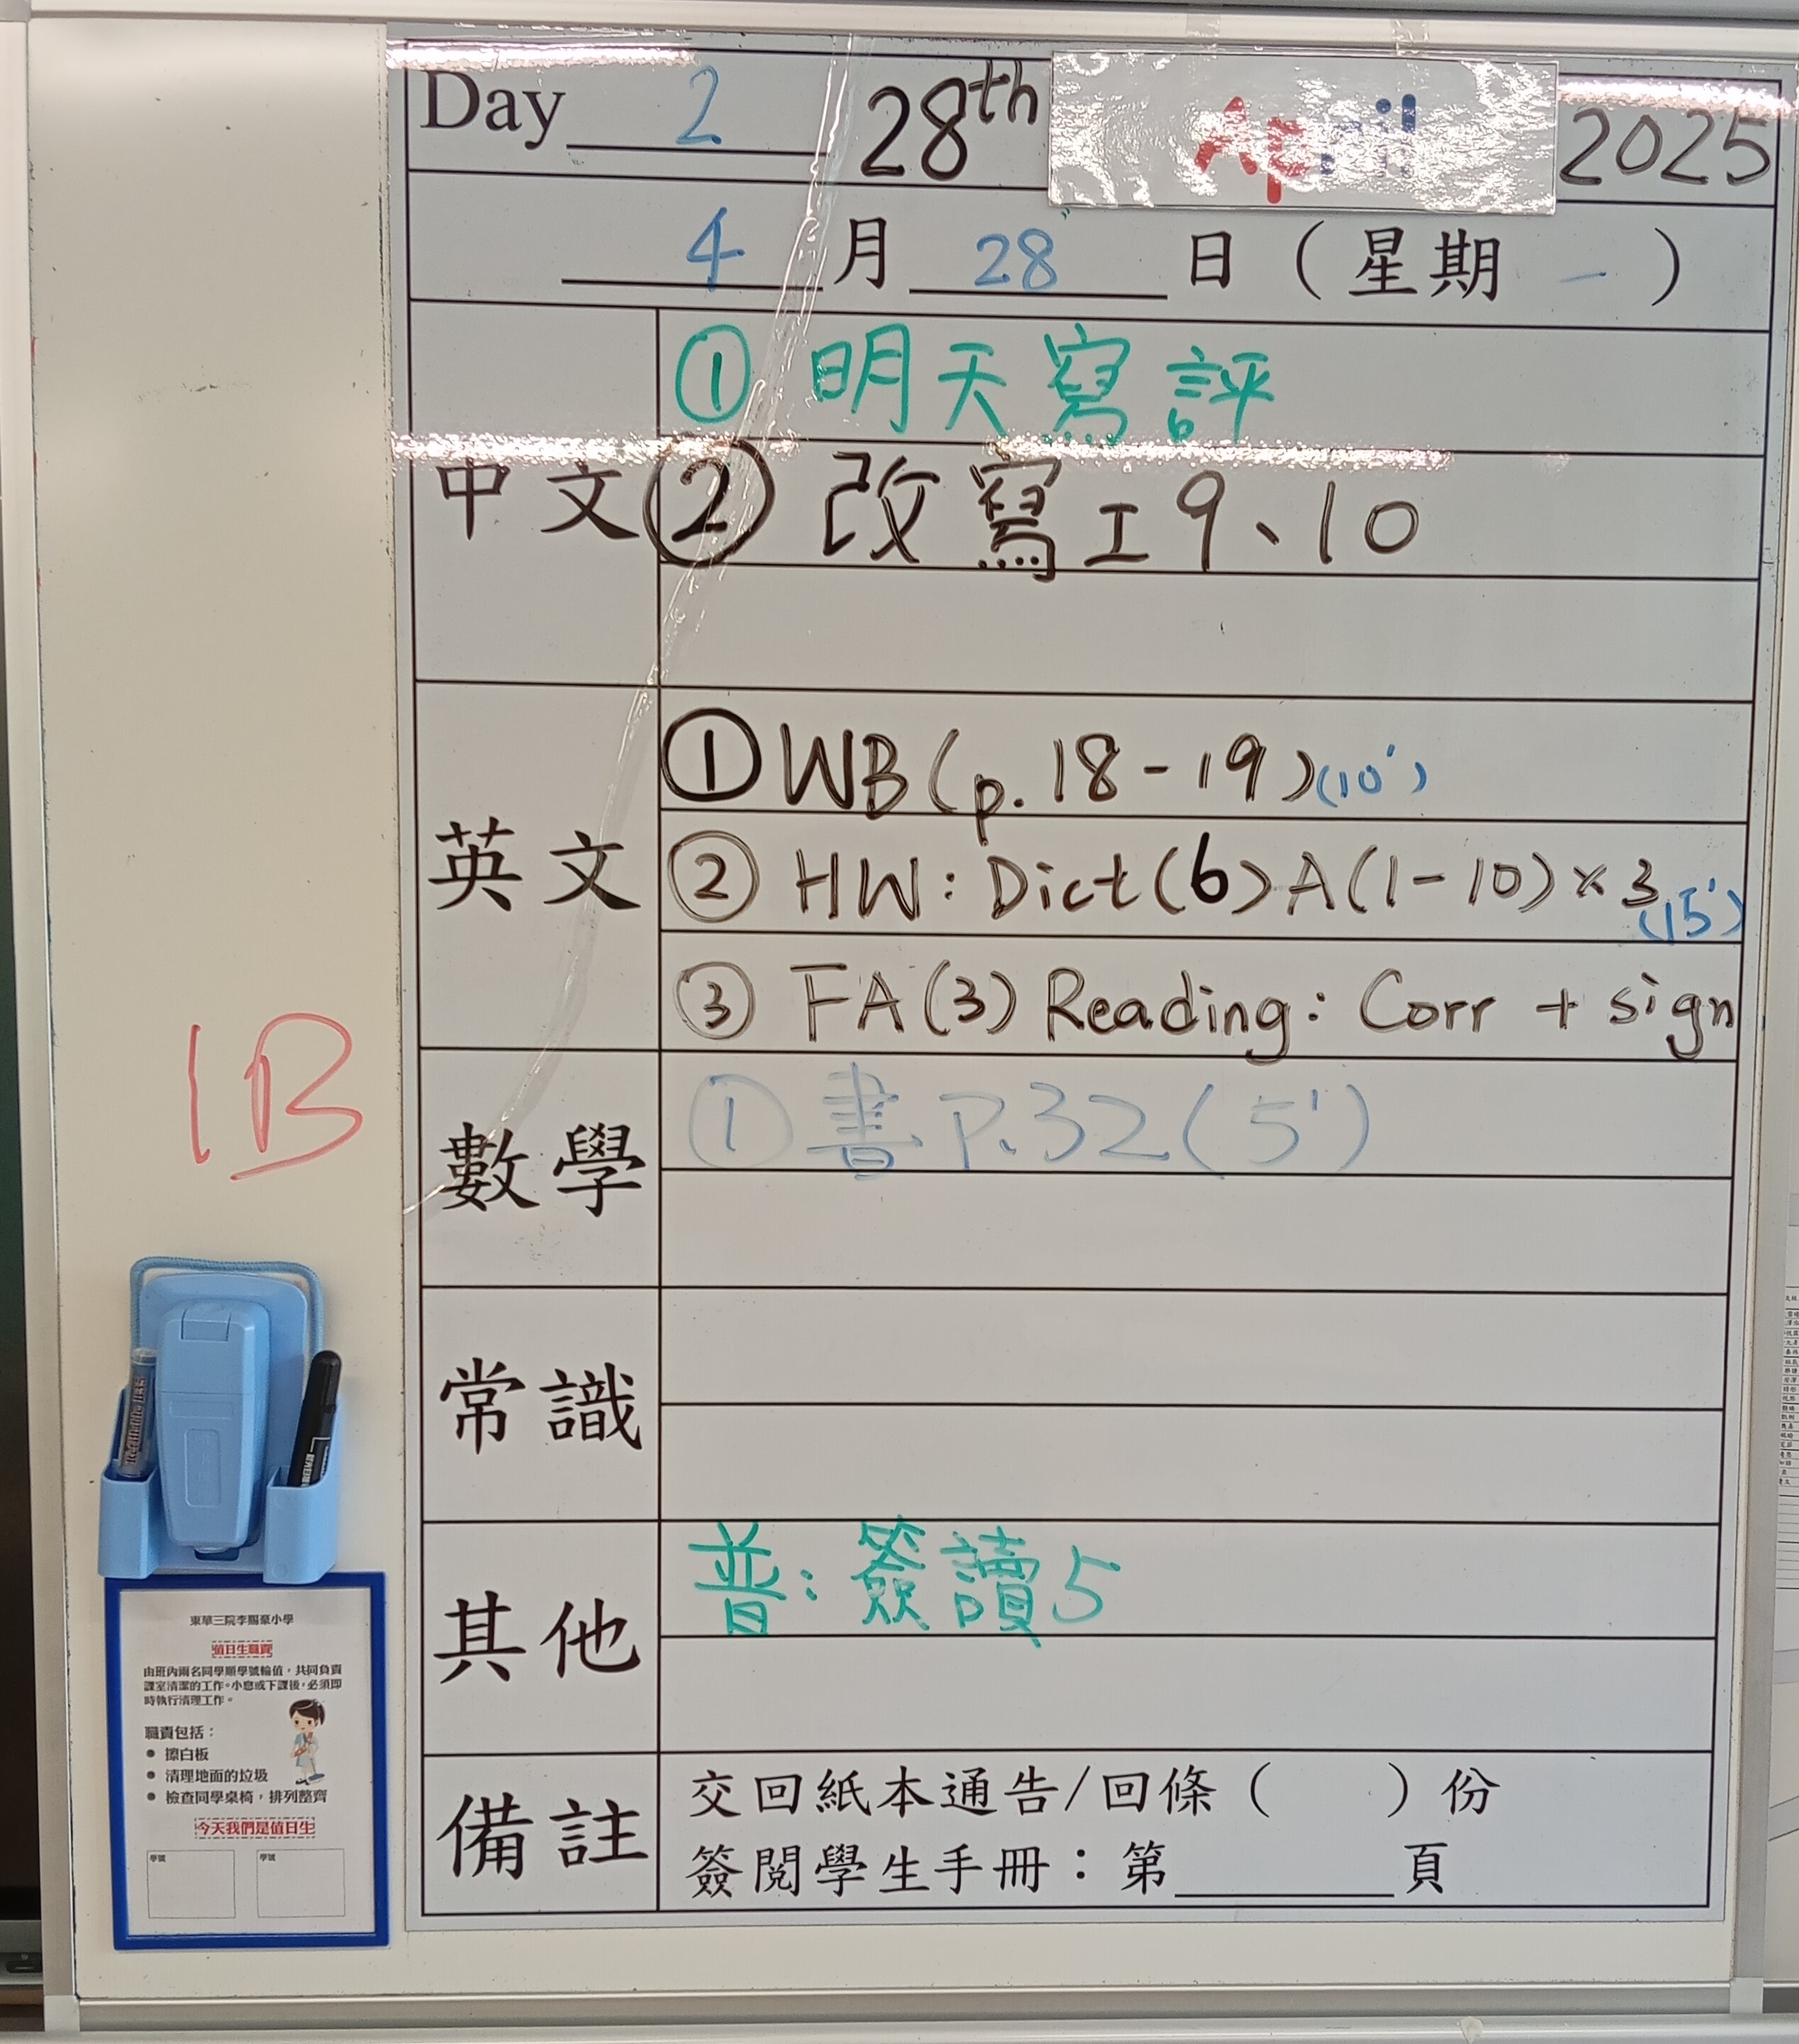 Day 2 28th April 2025
4 月 28 日 ( 星期 一 )
中文
① 明天寫評
② 改寫工9、10
英文
① WB (p. 18 - 19) (10')
② HW : Dict (6) A (1 - 10) × 3 (15')
③ FA (3) Reading : Corr + sign
數學
① 書 P.32 (5')
常識
其他
普：簽讀5
備註
交回紙本通告/回條 ( ) 份
簽閱學生手冊：第______頁
1B
東華三院李賜豪小學
值日生職責
由班內兩名同學順學號輪值，共同負責
課室清潔的工作。小息或下課後，必須即
時執行清理工作。
職責包括：
● 擦白板
● 清理地面的垃圾
● 檢查同學桌椅，排列整齊
今天我們是值日生
學號 學號